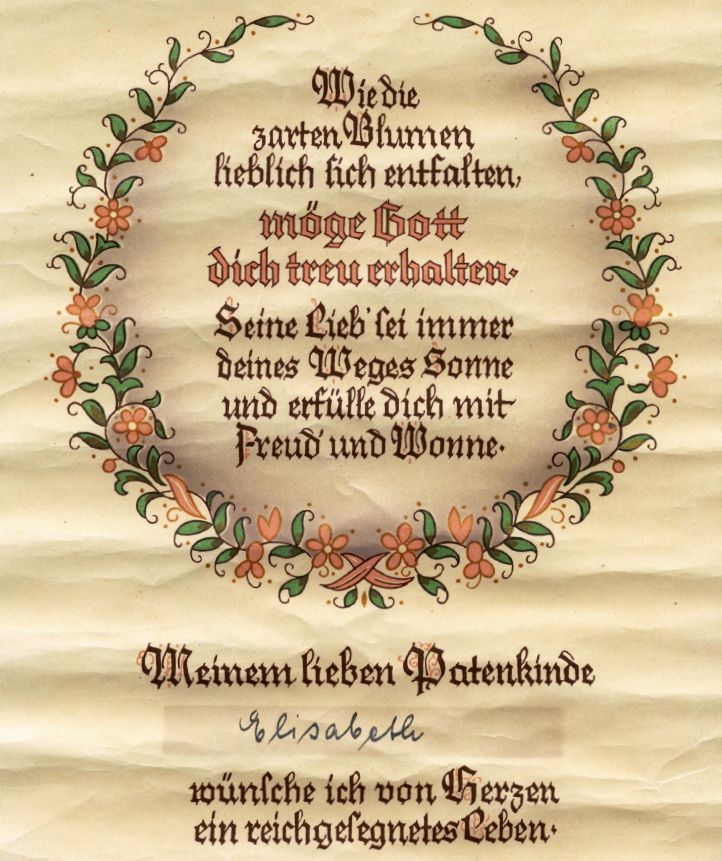 Wie die
zarten Blumen
lieblich sich entfalten,
möge Gott
dich treu erhalten.
Seine Lieb' sei immer
deines Weges Sonne
und erfülle dich mit
Freud' und Wonne.
Meinem lieben Patenkinde
Elisabeth
wünsche ich von Herzen
ein reichgesegnetes Leben.